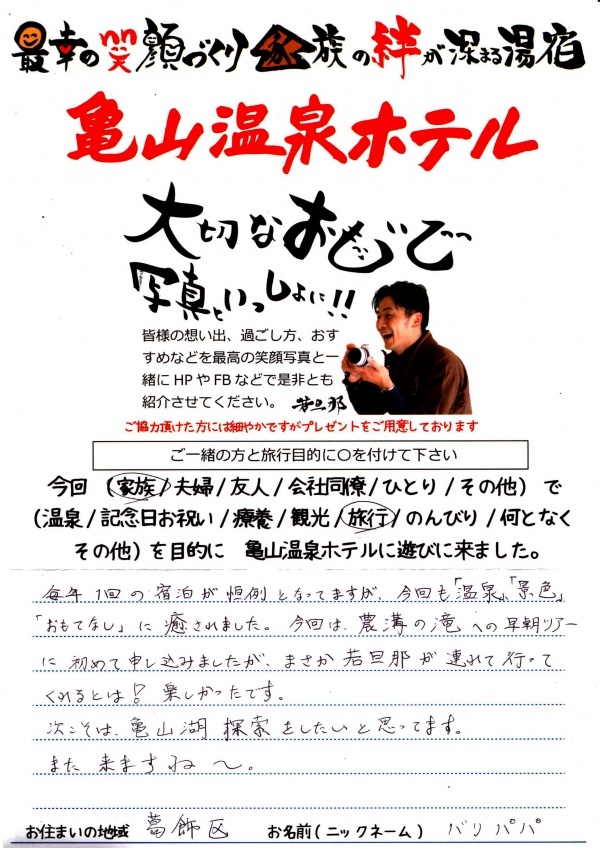 最幸の笑顔づくり 家族の絆が深まる湯宿
亀山温泉ホテル
大切なおもいで
写真といっしょに!!
皆様の想い出、過ごし方、おす
すめなどを最高の笑顔写真と一
緒にHPやFBなどで是非とも
紹介させてください。 若旦那
ご協力頂けた方には細やかですがプレゼントをご用意しております
ご一緒の方と旅行目的に〇を付けて下さい
今回 (家族/夫婦/友人/会社同僚/ひとり/その他) で
(温泉/記念日お祝い/療養/観光/旅行/のんびり/何となく
その他) を目的に 亀山温泉ホテルに遊びに来ました。
毎年1回の宿泊が恒例となってますが、今回も「温泉」、「景色」
「おもてなし」に癒されました。今回は、農溝の滝への早朝ツアー
に初めて申し込みましたが、まさか若旦那が連れて行って
くれるとは!? 楽しかったです。
次こそは、亀山湖探索をしたいと思ってます。
また来ますね〜。
お住まいの地域 葛飾区 お名前(ニックネーム) バリパパ